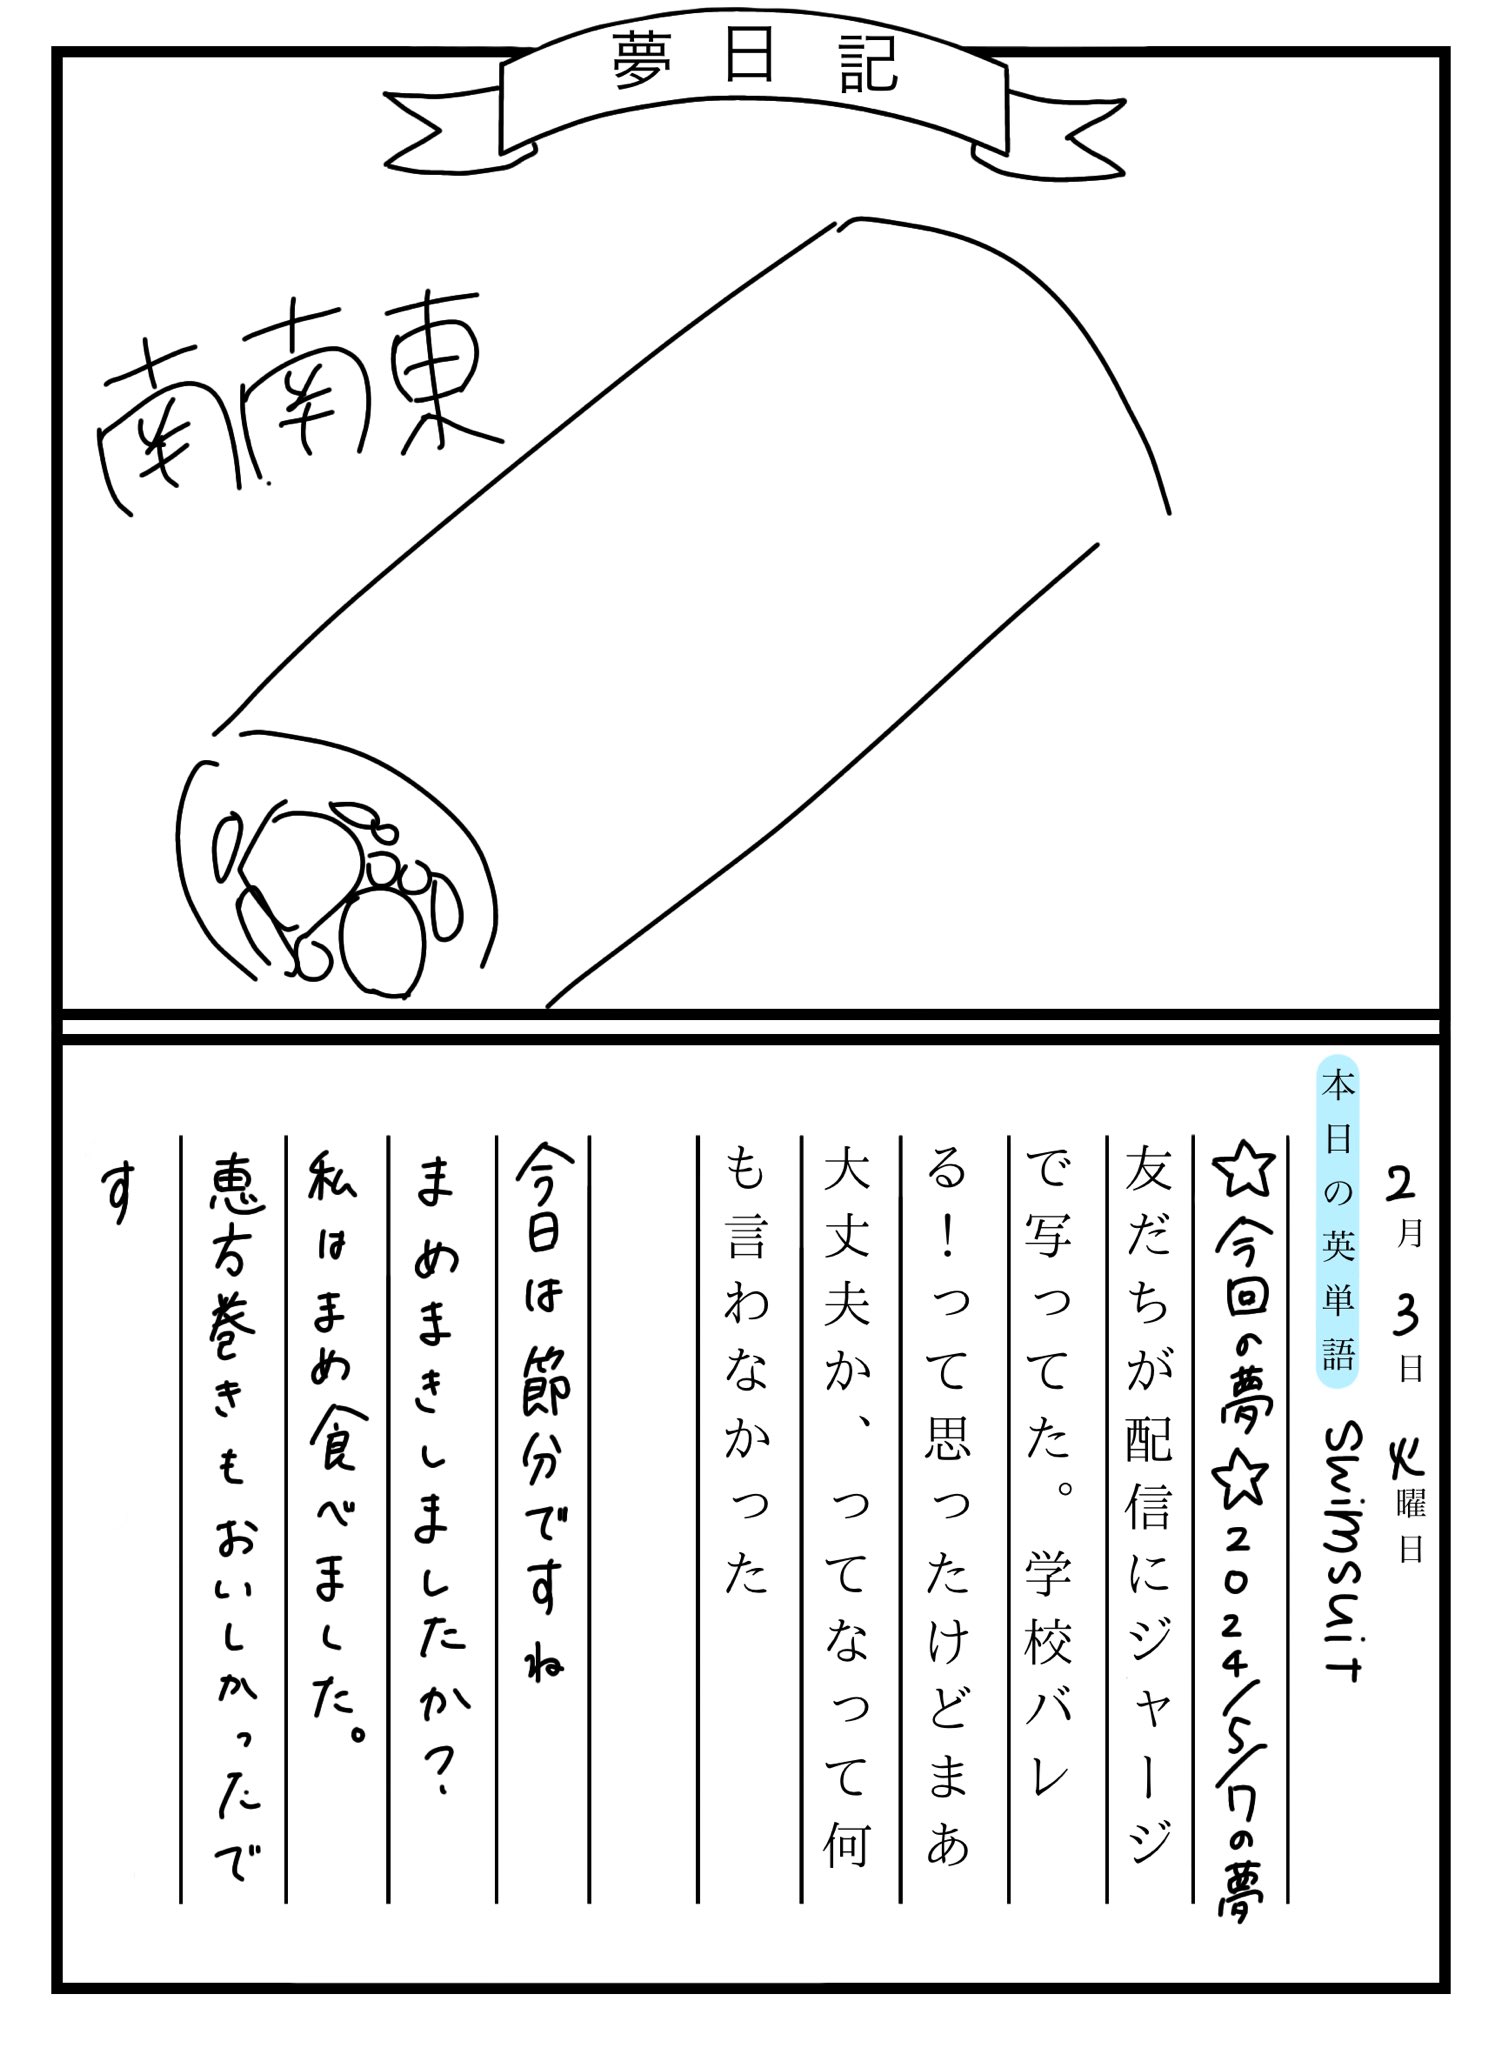 夢日記
南南東
2月3日火曜日
本日の英単語 swimsuit
☆今回の夢☆2024/5/7の夢
友だちが配信にジャージ
で写ってた。学校バレ
る！って思ったけどまあ
大丈夫か、ってなって何
も言わなかった
今日は節分ですね
まめまきしましたか？
私はまめ食べました。
恵方巻きもおいしかったで
す